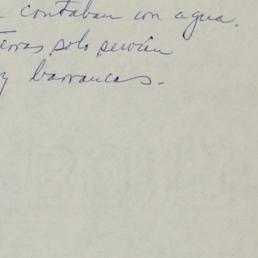 contaban con agua.
tierras solo servían
y barrancas.